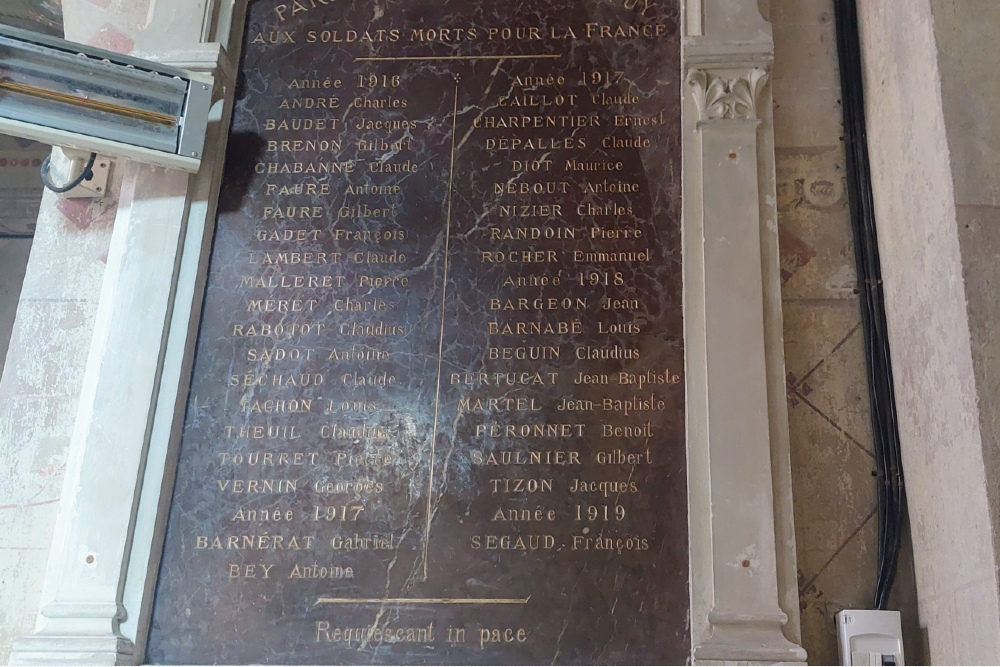 AUX SOLDATS MORTS POUR LA FRANCE
Année 1916
ANDRÉ Charles
BAUDET Jacques
BRENON Gilbert
CHABANNE Claude
FAURE Antoine
FAURE Gilbert
GADET François
LAMBERT Claude
MALLERET Pierre
MÉRET Charles
RABOTOT Claudius
SADOT Antoine
SÉCHAUD Claude
TACHON Louis
THEUIL Claudius
TOURRET Pierre
VERNIN Georges
Année 1917
BARNÉRAT Gabriel
BEY Antoine
Année 1917
CAILLOT Claude
CHARPENTIER Ernest
DÉPALLES Claude
DIOT Maurice
NÉBOUT Antoine
NIZIER Charles
RANDOIN Pierre
ROCHER Emmanuel
Année 1918
BARGEON Jean
BARNABÉ Louis
BEGUIN Claudius
BERTUCAT Jean-Baptiste
MARTEL Jean-Baptiste
PÉRONNET Benoit
SAULNIER Gilbert
TIZON Jacques
Année 1919
SEGAUD François
Requiescant in pace